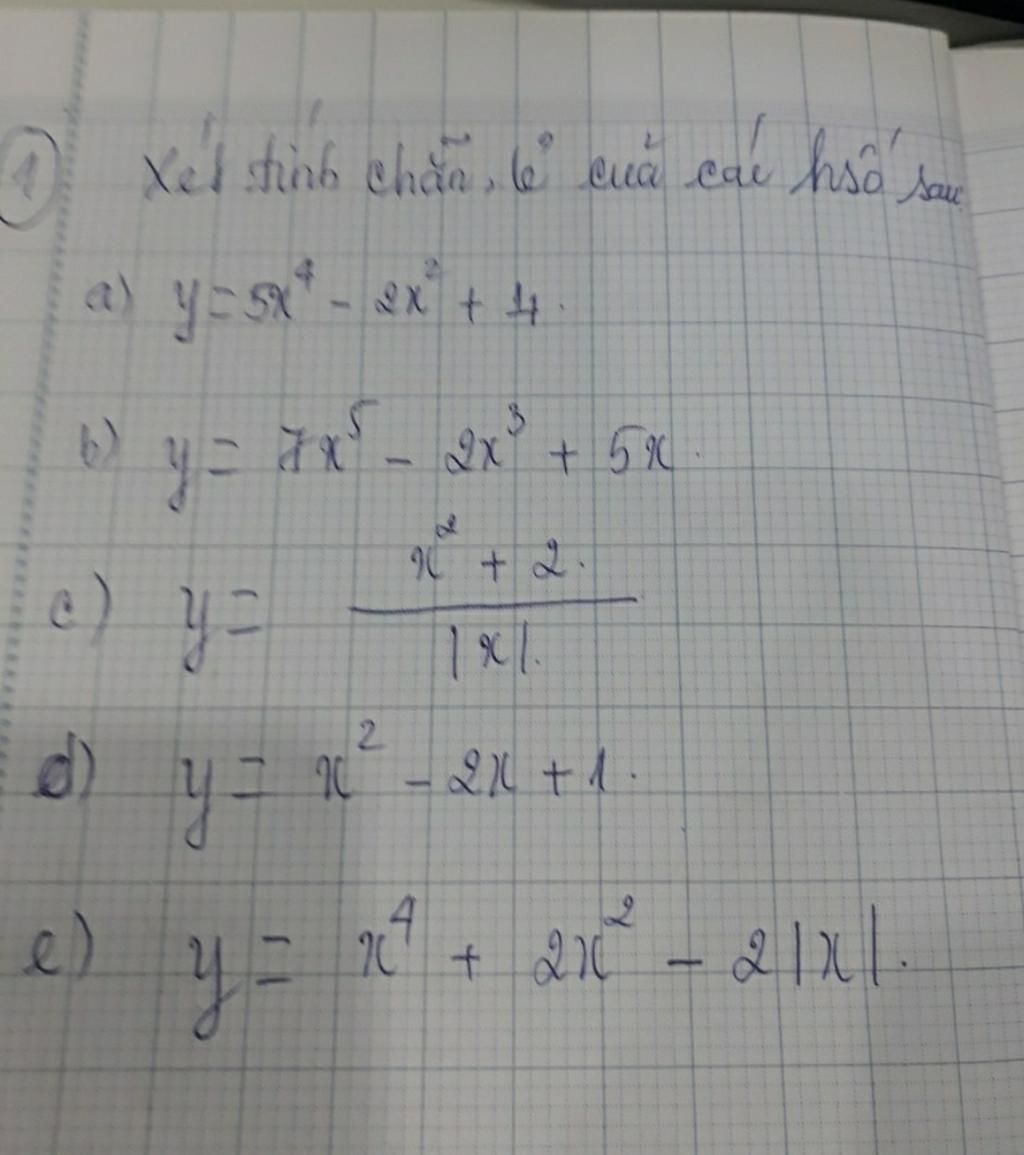 1 Xét tính chẵn, lẻ của các hsố sau
a) y = 5x⁴ - 2x² + 4.
b) y = 7x⁵ - 2x³ + 5x.
c) y = (x² + 2.)/(|x|.)
d) y = x² - 2x + 1.
e) y = x⁴ + 2x² - 2|x|.